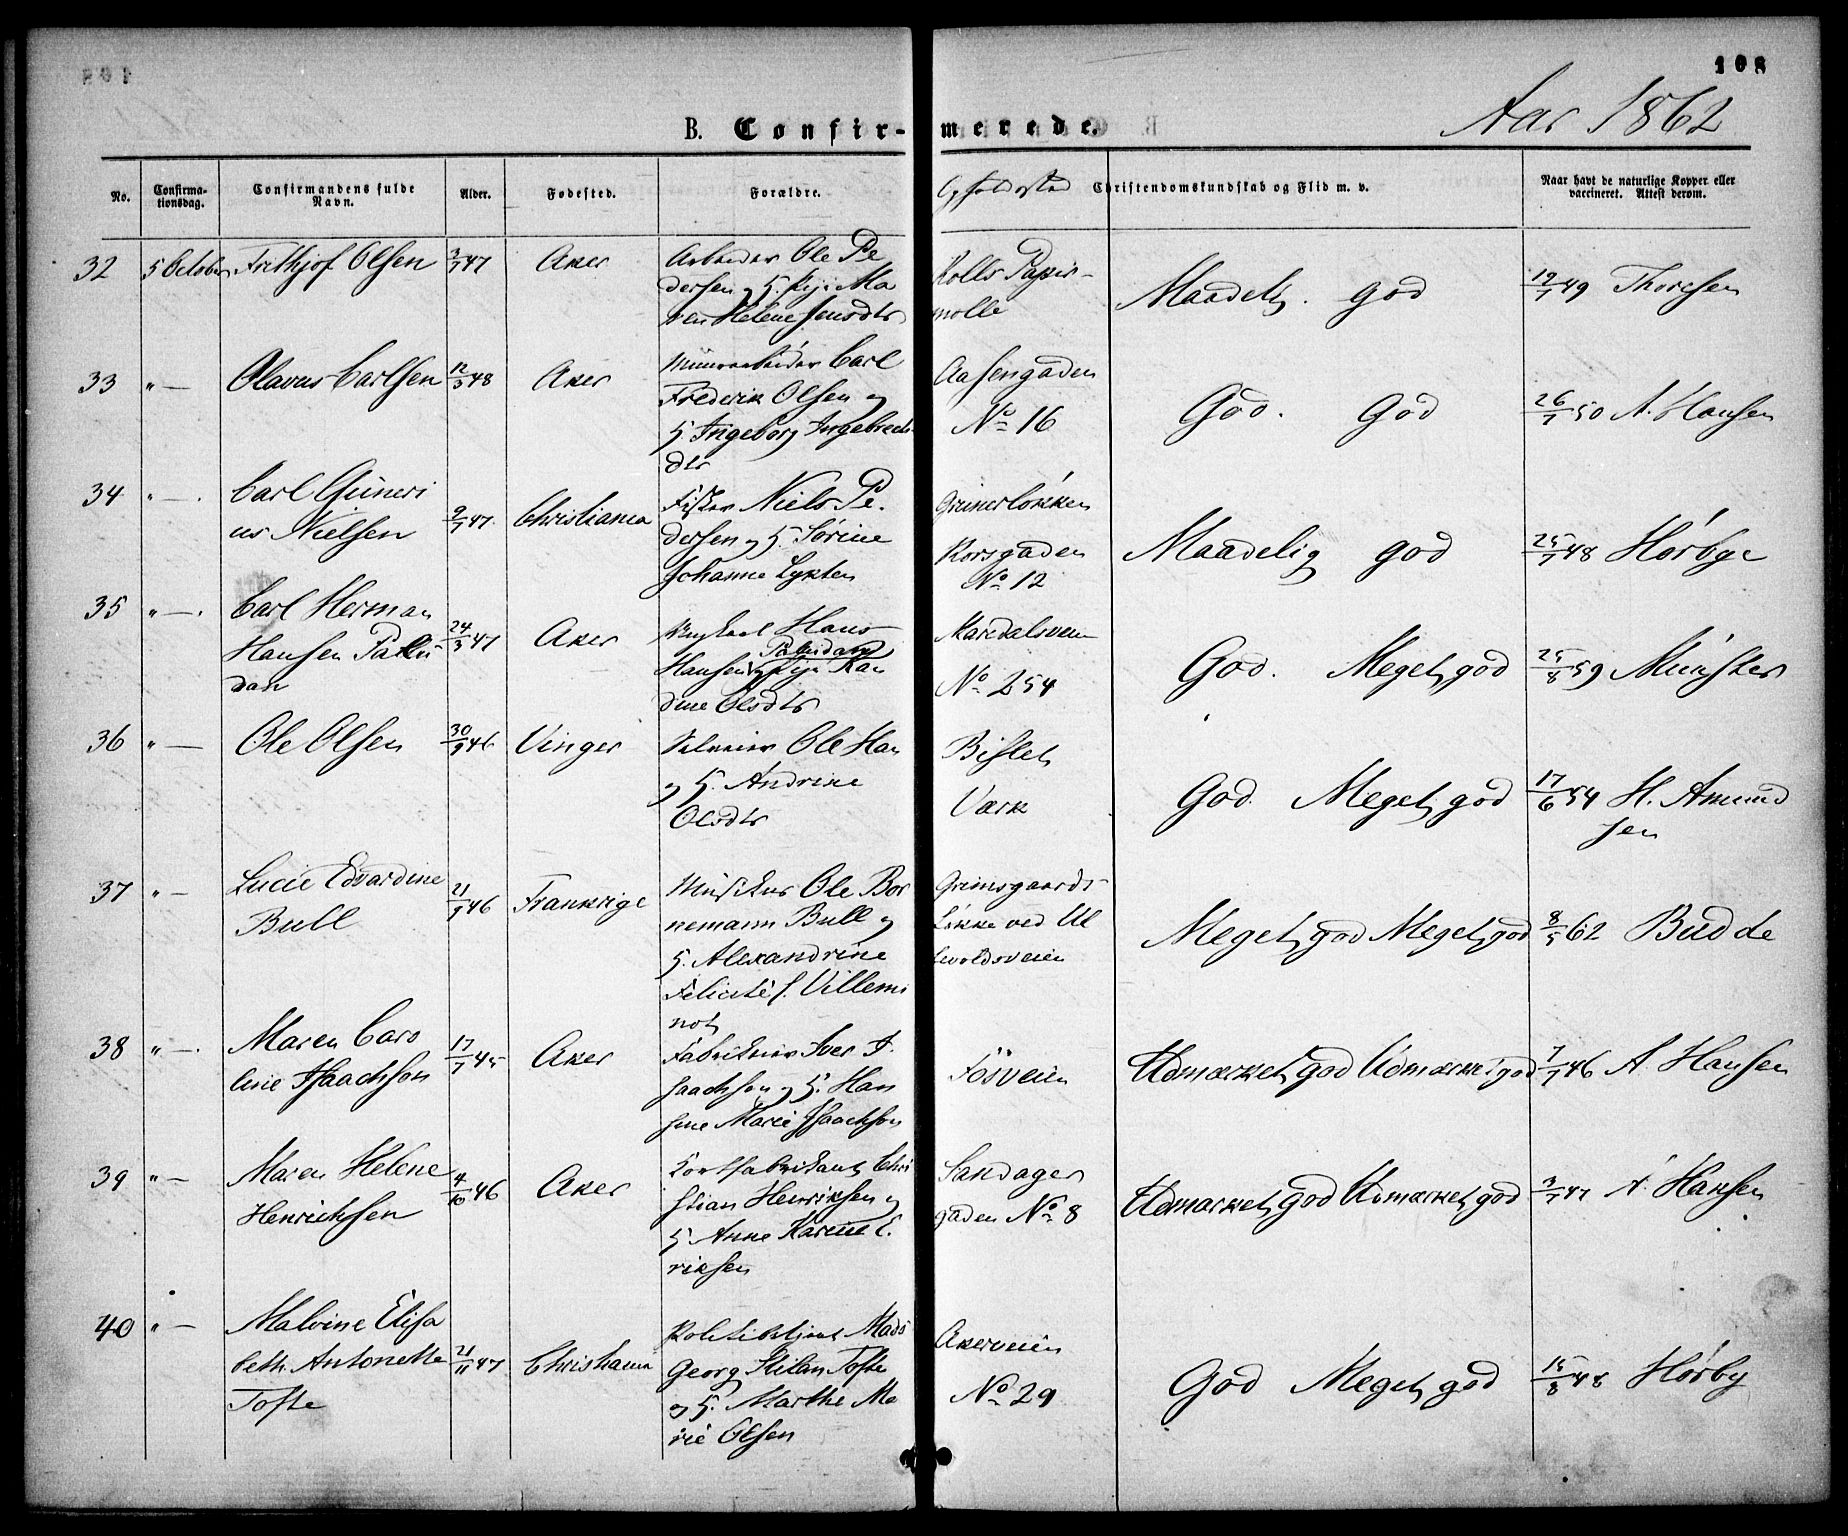 108
Aar 1862
B. Confir-merede.
No. Confirma-tionsdag. Confirmandens fulde Navn. Alder. Fødested. Forældre. Opholdssted Christendomskundskab og Flid m. v. Naar havt de naturlige Kopper eller vaccineret. Attest derom.
32 5 October Frithjof Olsen 47 Aker
Arbeider Ole Pe
dersen og H. Pige Ma
ren Helene Jensdtr
Kolls Papir-
mølle
Maadel. god
12/7 49 Thoresen
33 " — Olavus Carlsen 12/3 48 Aker
Murarbeider Carl
Frederik Olsen og
H. Ingeborg Ingebrets
dtr
Aasengaden
No 16
God. God
26/7 50 A. Hansen
34 " — Carl Guneri
us Nielsen
9/7 47 Christiania
Fisker Niels Pe.
dersen og H. Sørine
Johanne Lykten
Grünerløkken
Korsgaden
No 12
Maadelig god
25/7 48 Hørbye
35 " — Carl Herman
Hansen Palu
dan
24/3 47 Aker
Hans
Paludan
Hansen Pige Kan
dine Olsdtr
Maridalsveien
No 254
God. Meget god
25/8 59 Münster
36 " — Ole Olsen 30/9 46 Vinger
Ole Han
og H. Andrine
Olsdtr
Bislet
Værk
God. Meget god
17/6 54 H. Amund
sen
37 " — Lucie Edvardine
Bull
21/9 46 Frankrige
Musikus Ole Bor
nemann Bull og
H. Alexandrine
Felicité f. Villemi
not
Grimsgaards-
Løkke ved Ul
levoldsveien
Meget god Meget god
8/5 62 Budde
38 " — Maren Caro
line Isaachson
17/7 45 Aker
Fabrikeier Iver I.
saachson og H. Han
sine Marie Isaachson
Fosveien
Udmærket god Udmærket god
7/7 46 A. Hansen
39 " — Maren Helene
Henrichsen
4/10 46 Aker
Kortfabrikant Chri
stian Henriksen og
H. Anne Karine E.
riksen
Sandager
gaden No 8
Udmærket god Udmærket god
3/7 47 A. Hansen
40 " — Malvine Elisa
beth Antonette
Tofte
21/11 47 Christiania
Politibetjent Mads
Georg Stilan Tofte
og H. Marthe Ma
rie Olsen
Akerveien
No 29
God Meget god
15/8 48 Hørby